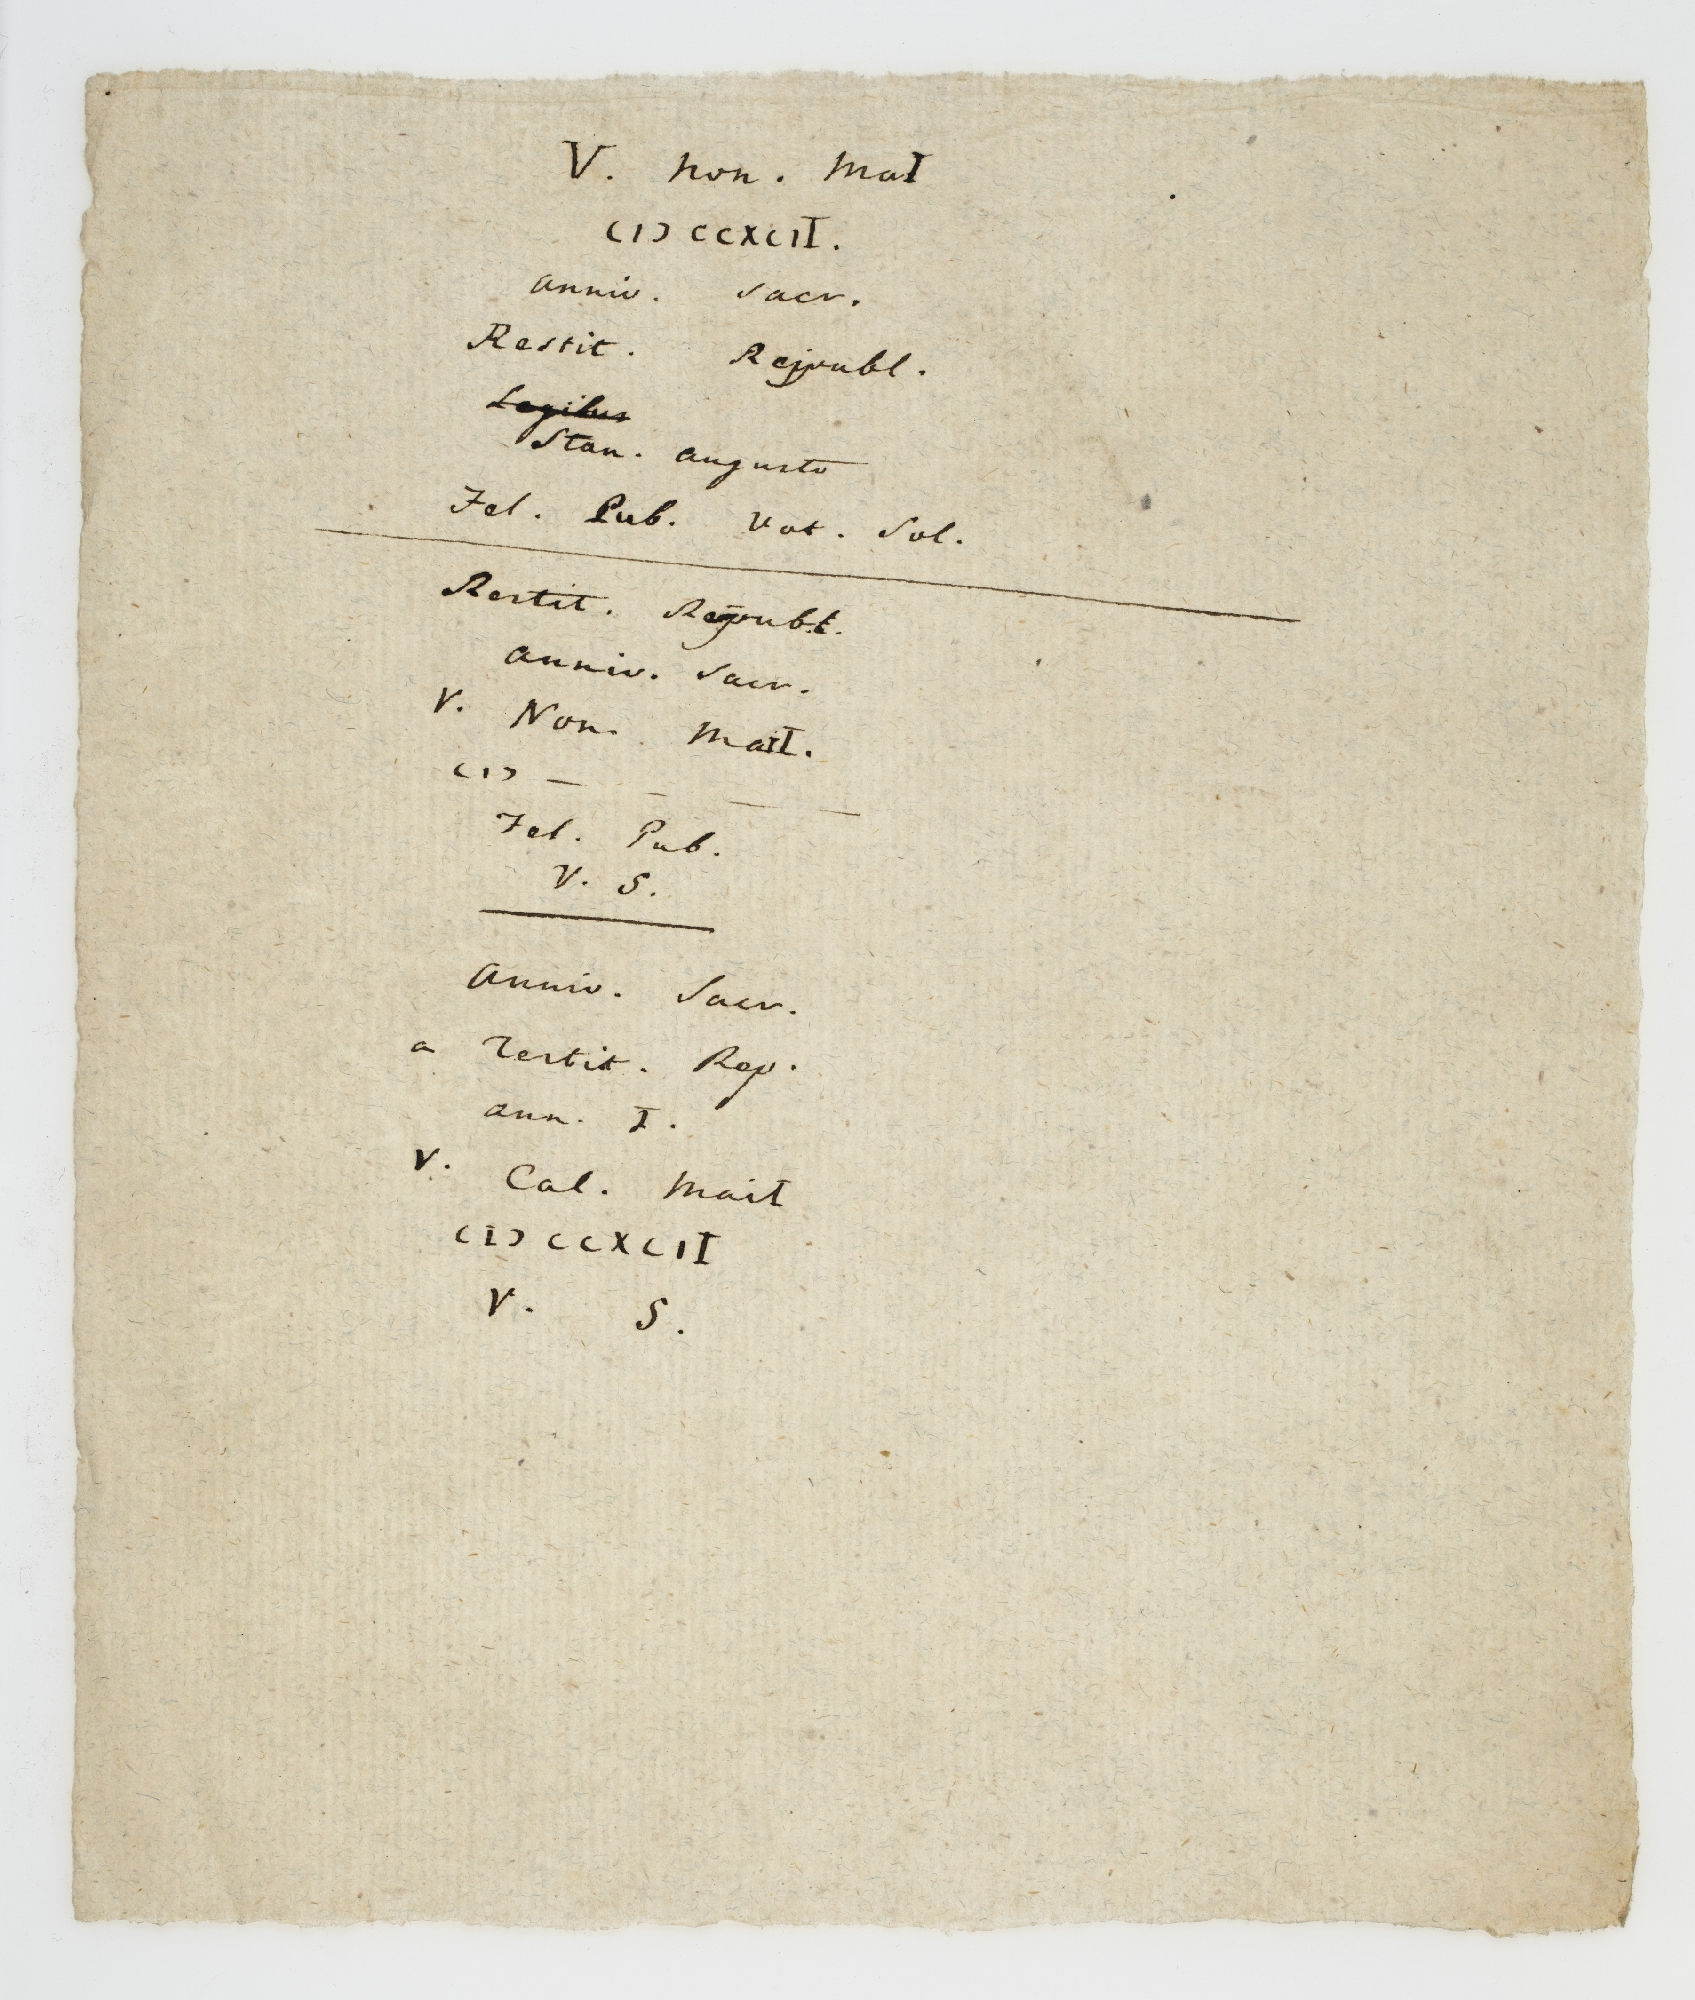 V. Non. MaI
(I) CCXCII.
Anniv. Sacr.
Restit. Reipubl.
Legibus
Stan. Augusto
Fel. Pub. Vot. Sol.
Restit. Reipubl.
Anniv. Sacr.
V. Non. MaiI.
(I) — — — —
Fel. Pub.
V. S.
Anniv. Sacr.
a restit. Rep.
ann. I.
V. Cal. MaiI
(I) CCXCII
V. S.